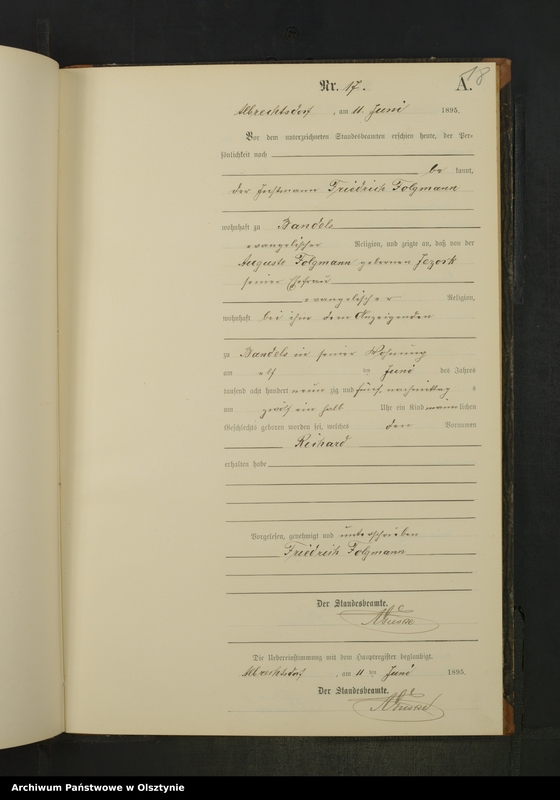 18
Nr. 17. A.
Albrechtsdorf, am 11 Juni 1895.
Vor dem unterzeichneten Standesbeamten erschien heute, der Per-
sönlichkeit nach
be kannt,
der Friedrich Folgmann
wohnhaft zu Bandels
evangelischer Religion, und zeigte an, daß von der
Auguste Folgmann geborenen
seiner Ehefrau
evangelischer Religion,
wohnhaft bei ihm dem Anzeigenden
zu Bandels in seiner Wohnung
am elf ten Juni des Jahres
tausend acht hundert neun zig und fünf, nachmittag s
um ein halb Uhr ein Kind männlichen
Geschlechts geboren worden sei, welches den Vornamen
Richard
erhalten habe
Vorgelesen, genehmigt und unterschrieben
Friedrich Folgmann
Der Standesbeamte.
Die Uebereinstimmung mit dem Hauptregister beglaubigt.
Albrechtsdorf, am 11 ten Juni 1895.
Der Standesbeamte.
Archiwum Państwowe w Olsztynie